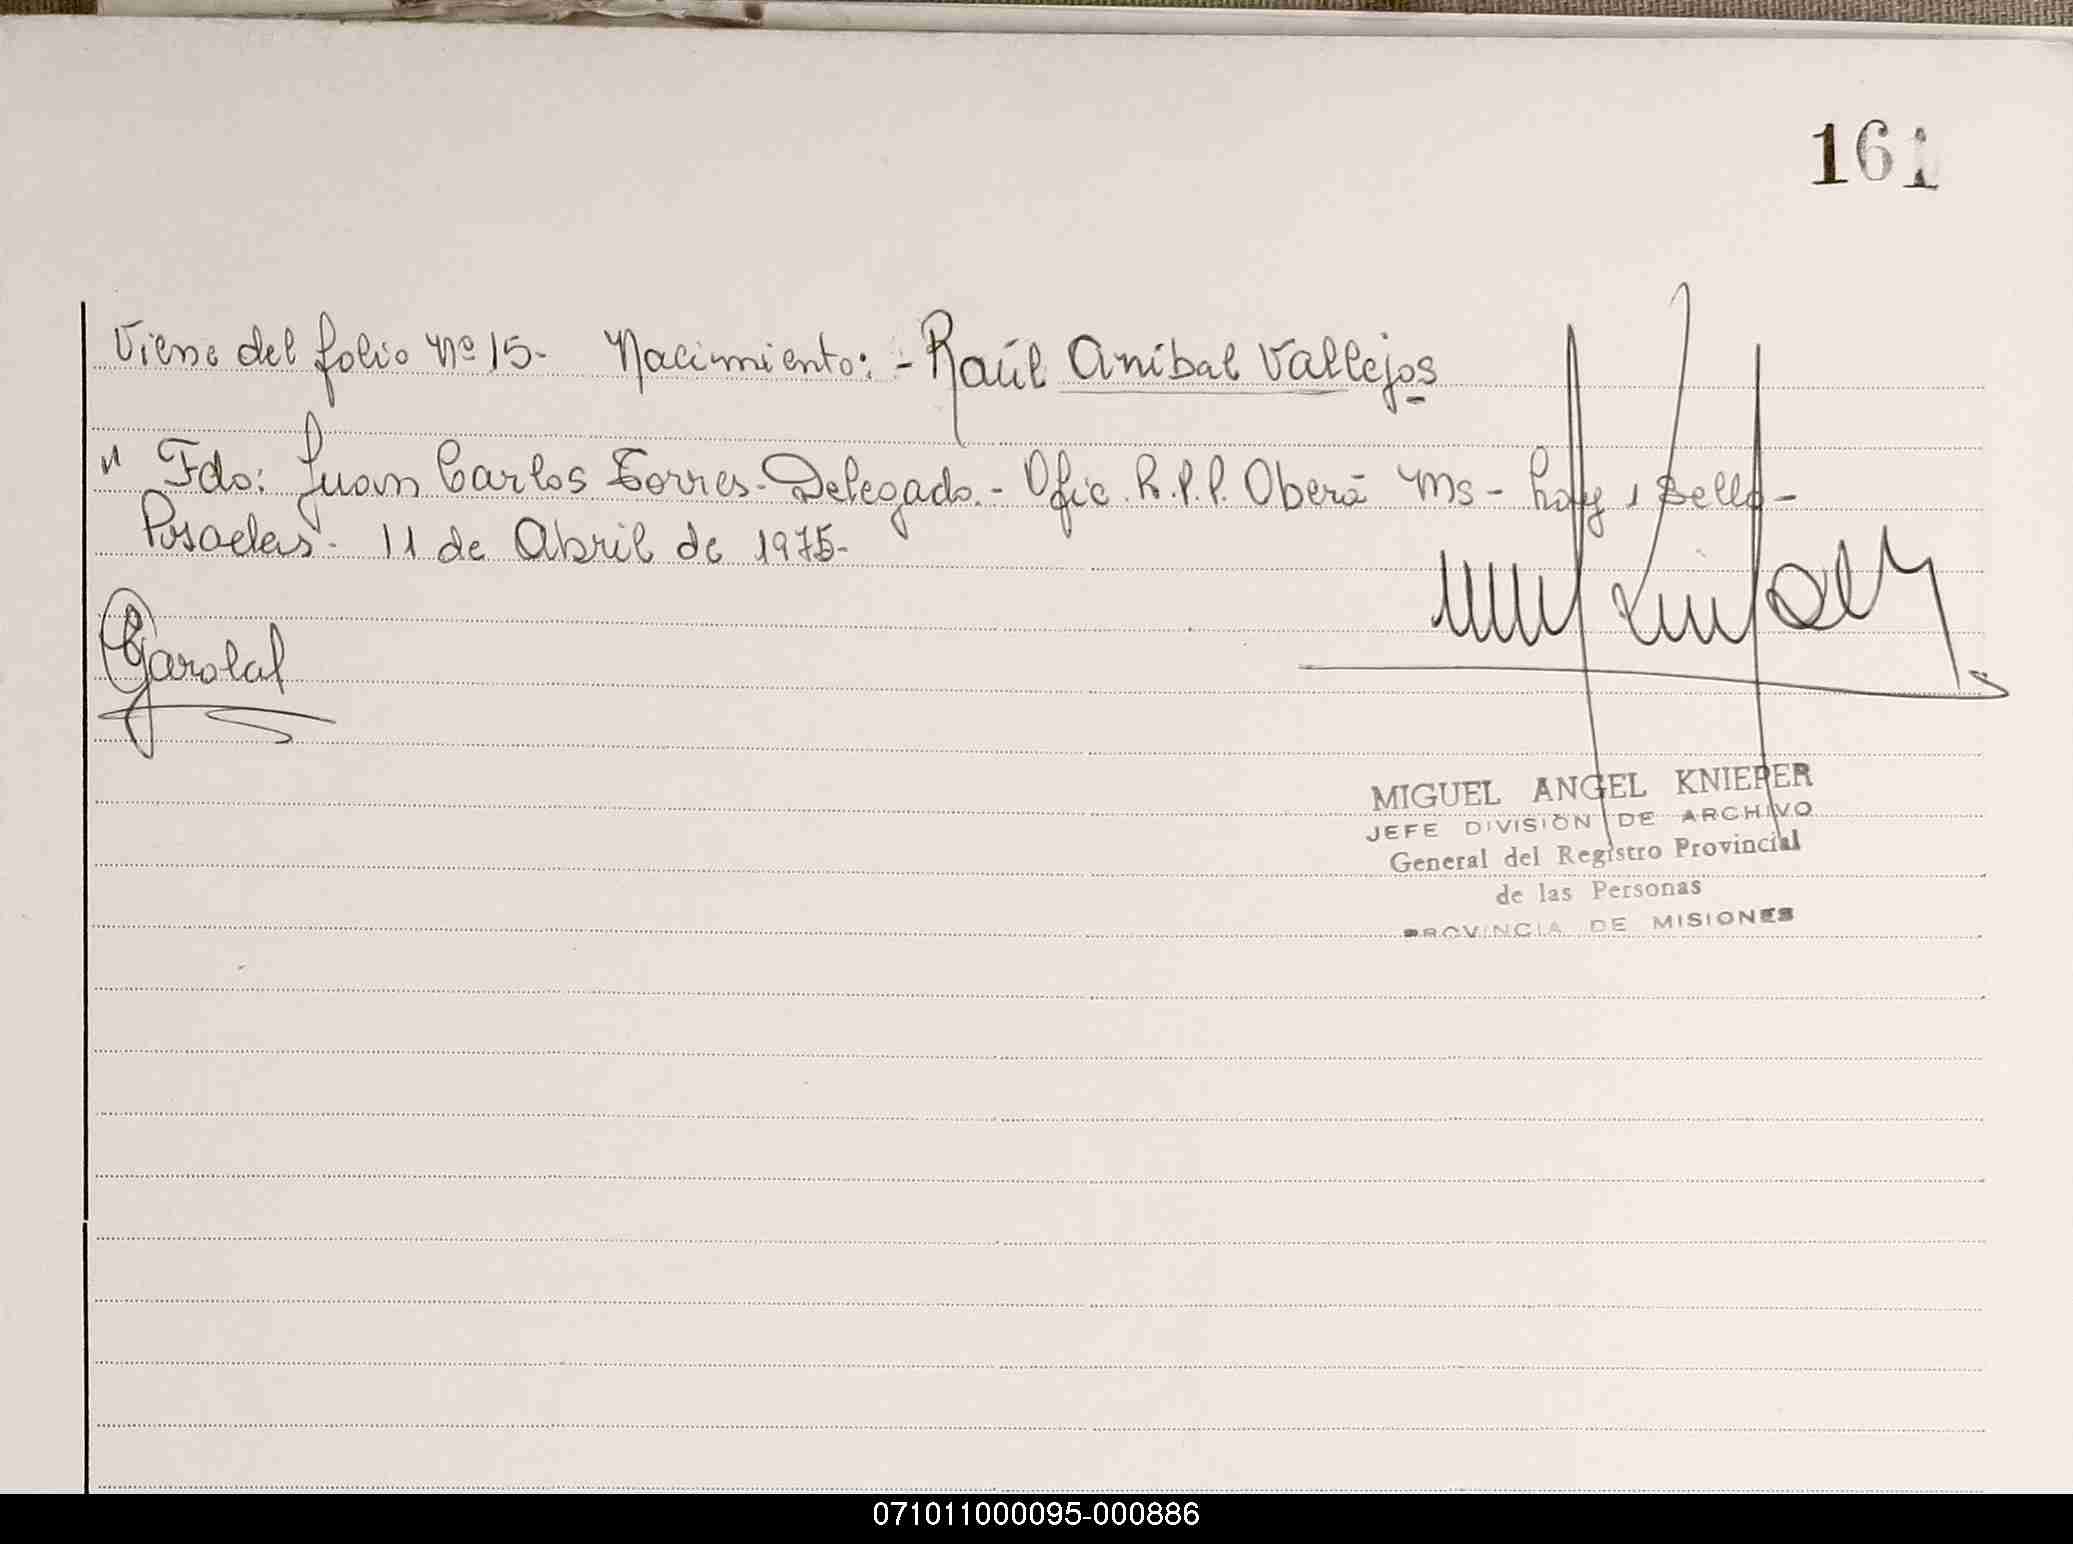 161
Viene del folio Nº 15- Nacimiento: - Raúl Aníbal Vallejos
" Fdo: Juan Carlos Torres - Delegado. - Ofic. R.P.P. Oberá Ms - hay 1 sello -
Posadas - 11 de Abril de 1975-
MIGUEL ANGEL KNIEPER
JEFE DIVISION DE ARCHIVO
General del Registro Provincial
de las Personas
PROVINCIA DE MISIONES
071011000095-000886